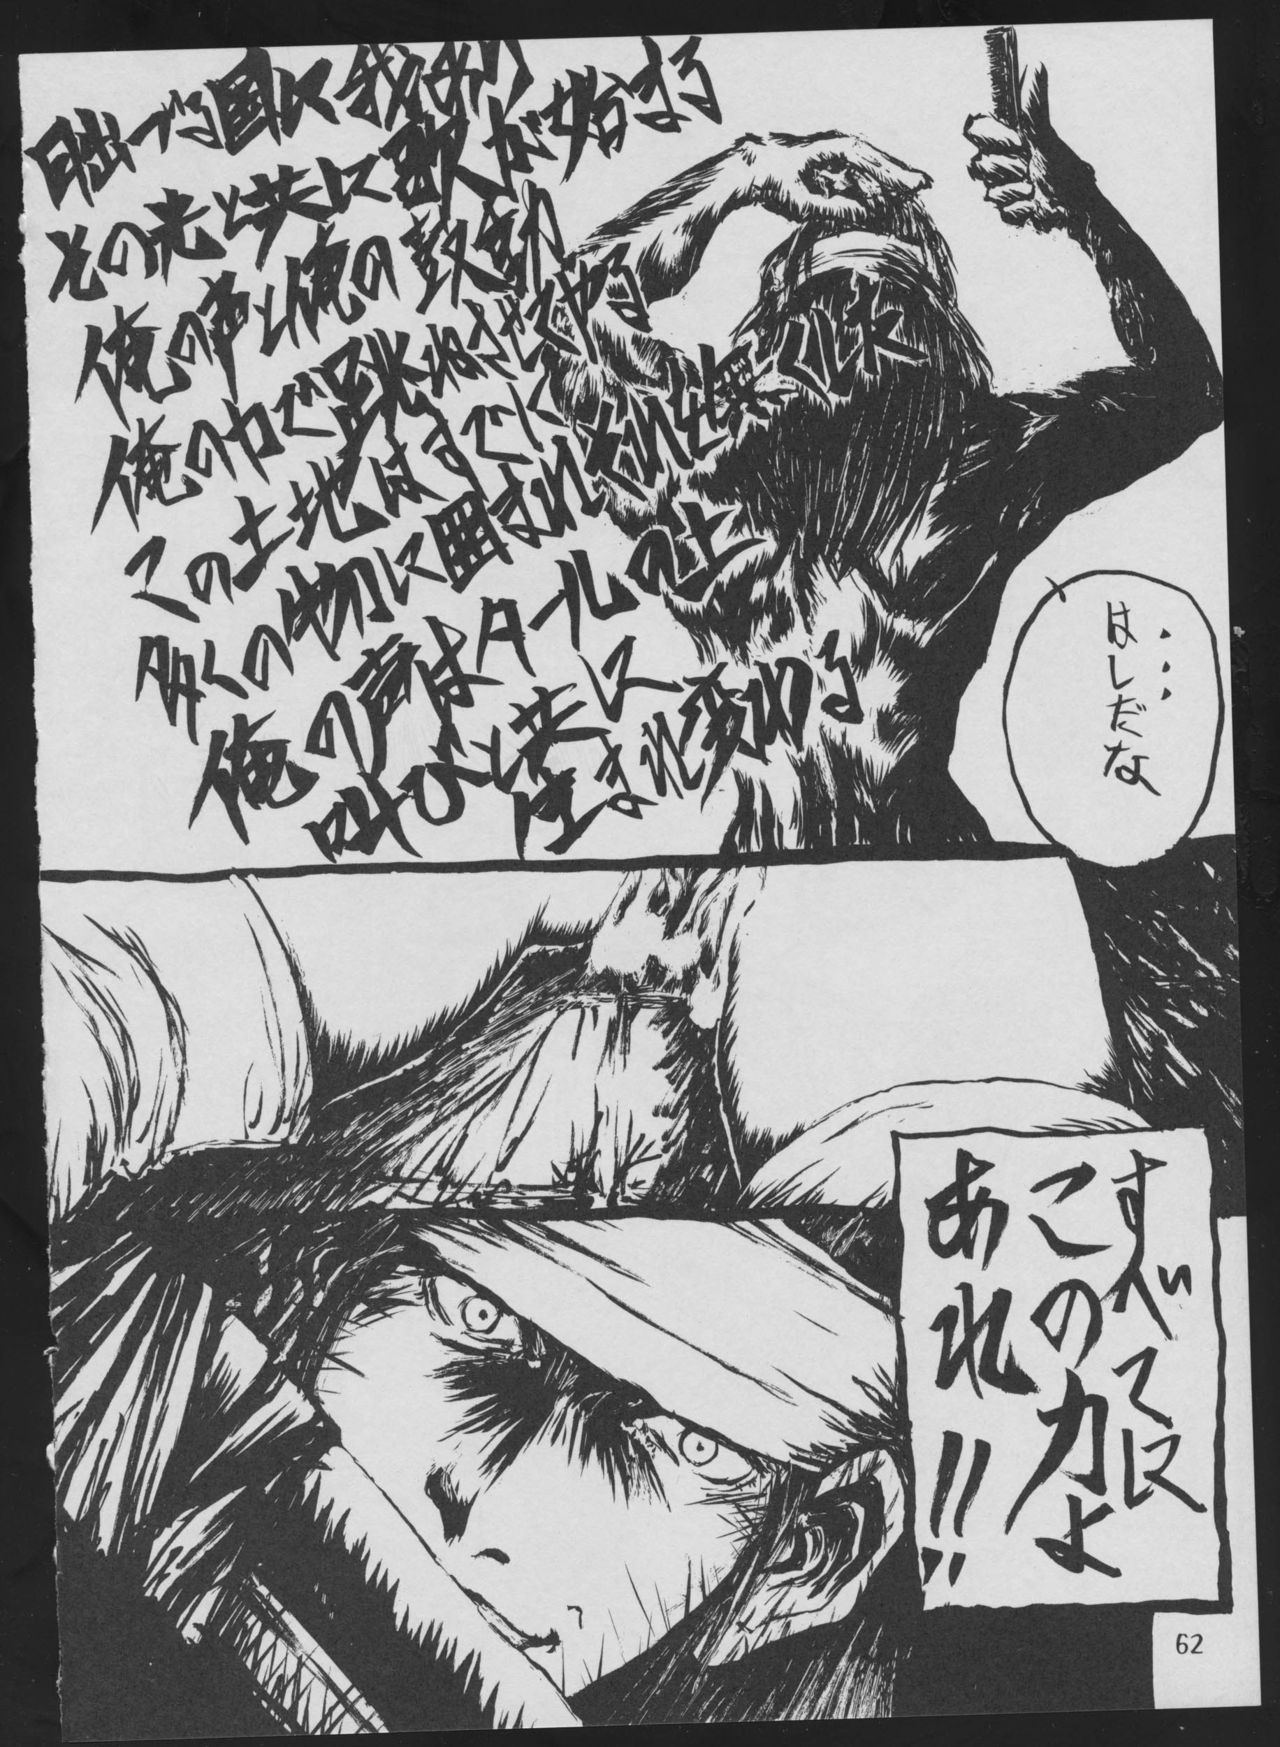 日出づる国に我あり
その光と共に歌が始まる
俺の声と俺の鼓動
俺の力で跳ねさせてやる
この土地はすでに
多くの物に囲まれ
俺の声はタールの上
叫びと共に
生まれ変わる
…はしだな
すべてに
この力よ
あれ!!
62